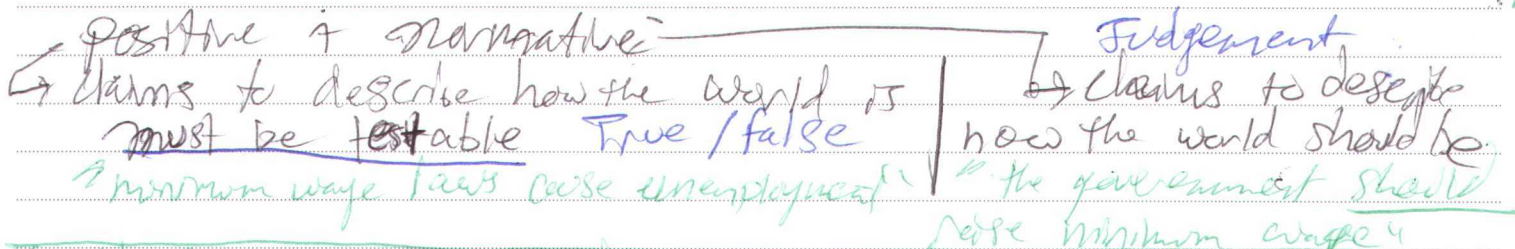 positive & normative: Judgement
↳ claims to describe how the world is
must be testable True / false
"minimum wage laws cause unemployment"
↳ claims to describe
how the world should be
"the government should
raise minimum wage"